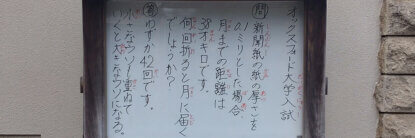 オックスフォード大学入試
問 新聞紙の紙の厚さを
0.1ミリとした場合、
月までの距離は
38万キロです。
何回折ると月に届く
でしょうか?
答 わずか42回です。
小さなウソも重ねて
いくと大きなウソになる。